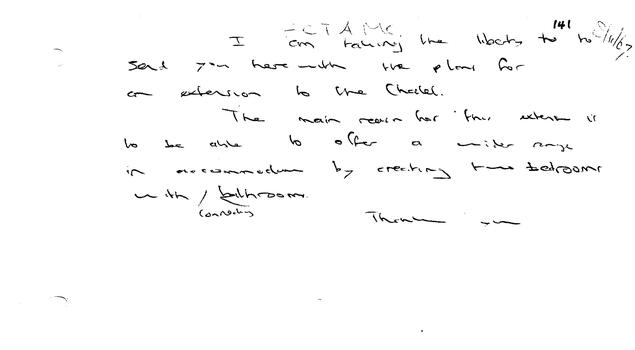 I am taking the liberty to to
send you herewith the plans for
an extension to the Chalet.
The main reason for this extension is
to be able to offer a wider range
in accommodation by creating two bedrooms
with / bathrooms.
connecting
Thank you